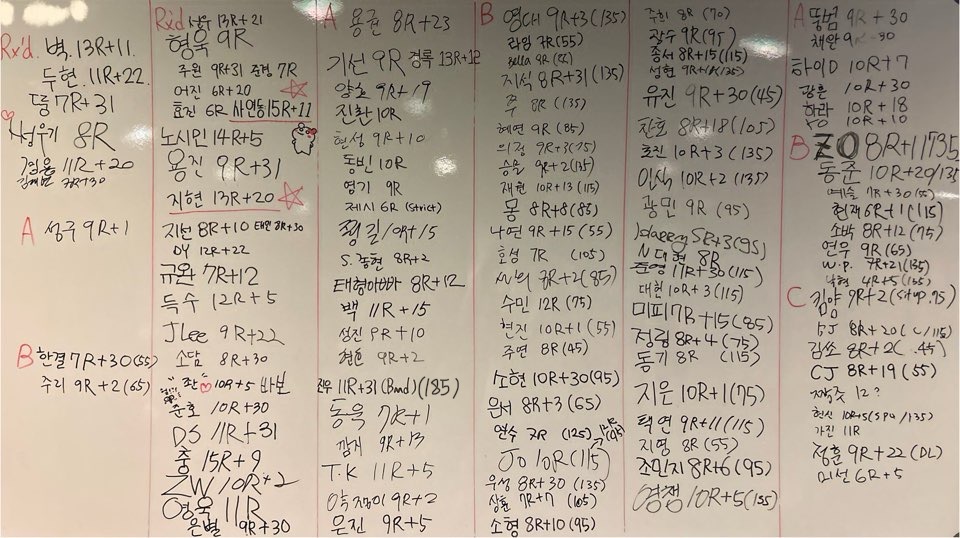 Rx'd.
벽. 13R+11.
두현. 11R+22.
뚱 7R+31
8R
11R+20
7R+30
A 성구 9R+1
B 한결 7R+30(55)
수리 9R+2(65)
Rx'd 13R+21
형욱 9R
주원 9R+31 준경 7R
어진 6R+20
효진 6R 사인동 15R+11
노시민 14R+5
용진 9R+31
지현 13R+20
지선 8R+10 태민 8R+30
DY 12R+22
규완 7R+12
득수 12R+5
J lee 9R+22
소담 8R+30
10R+5 바보
준호 10R+30
DS 11R+31
충 15R+9
ZW 10R+2
영욱 11R
은별 9R+30
A 용권 8R+23
기선 9R 경록 13R+12
양호 9R+19
진환 10R
현성 9R+10
동빈 10R
영기 9R
제시 6R (strict)
꿩길 10R+15
S. 종현 8R+2
태형아빠 8R+12
백 11R+15
성진 9R+10
9R+2
진우 11R+31 (Band) (185)
동욱 7R+1
깜지 9R+13
T.K 11R+5
9R+2
은진 9R+5
B 영대 9R+3(135)
라임 7R(55)
Bella 9R
지식 8R+31(135)
쭈 8R (135)
혜연 9R (85)
의정 9R+3(75)
승용 9R+2(135)
재현 10R+13(115)
몽 8R+8(85)
나연 9R+15(55)
호성 7R (105)
7R+2(85)
수민 12R(75)
현진 10R+1(55)
주연 8R(45)
소현 10R+30(95)
은서 8R+3(65)
연수 7R (125)
Jo 10R(115)
우성 8R+30(135)
상훈 7R+7 (105)
소형 8R+10(95)
주희 8R (70)
광수 9R(95)
종서 8R+15(115)
유진 9R+30(45)
찬호 8R+18(105)
효진 10R+3(135)
인식 10R+2(135)
광민 9R(95)
5R+3(95)
N 대형 8R
준영 17R+30(115)
대현 10R+3(115)
미피 7R+15(85)
정림 8R+4(75)
동기 8R (115)
지은 10R+1(75)
택연 9R+11(115)
지영 8R(55)
조민지 8R+6(95)
영잼 10R+5(155)
A 뚱범 9R+30
채완 9R+30
하이D 10R+7
광훈 10R+30
하람 10R+18
10R+10
B ZO 8R+11
동준 10R+20/135
예슬 7R+30(55)
현재 6R+1(115)
소박 8R+12(75)
연우 9R(65)
W.P. 7R+21(135)
4R+5(135)
C 김양 9R+2(situp.95)
FJ 8R+20
김쏘 8R+2(.45)
CJ 8R+19(55)
12?
헌신 10R+5(SPU/135)
가진 11R
정훈 9R+22(DL)
미선 6R+5